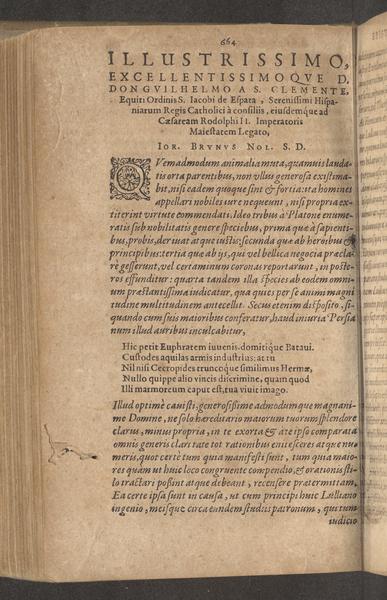 664
ILLUSTRISSIMO,
EXCELLENTISSIMOQVE D.
DON GVILHELMO A S. CLEMENTE,
Equiti Ordinis S. Iacobi de Espata, Serenissimi Hispa-
niarum Regis Catholici à consiliis, eiusdemque ad
Cæsaream Rodolphi II. Imperatoris
Maiestatem Legato,
IOR. BRVNVS NOL. S. D.
QVemadmodum animalia muta, quamuis lauda-
tis orta parentibus, non vllius generosa existima-
bit, nisi eadem quoque sint & fortia: ita homines
appellari nobiles iure nequeunt, nisi propria ex-
titerint virtute commendati. Ideo tribus à Platone enume-
ratis sub nobilitatis genere speciebus, prima quæ à sapienti-
bus, probis, ac iustis; secunda quæ ab heroibus &
principibus: tertia que ab ijs, qui vel bellica negotia præcla-
rè gesserunt, vel certaminum coronas reportarunt, in poste-
ros effunditur: quarta tandem illa species ab eodem omni-
um præstantissima iudicatur, qua quis per se animi magni
tudine multitudinem antecellit. Secus etenim disposito, si-
quando cum suis maioribus conferatur, haud iniuria Persia
num illud auribus inculcabitur,
Hic petit Euphratem iuuenis, domitique Bataui.
Custodes aquilas armis industrius: at tu
Nil nisi Cecropides truncoque simillimus Hermæ,
Nullo quippe alio vincis discrimine, quam quod
Illi marmoreum caput est, tua viuit imago.
Illud optimè cauisti generosissime admodumque magnani-
me Domine, ne solo hæreditario maiorum tuorum splendore
clarius, minus propria, in te exorta & a te ipso comparata
omnis generis claritate tot rationibus enitesceres atque nu-
meris, quot certè tum quia manifesti sunt, tum quia maio-
res quàm ut huic loco congruente compendio, & orationis sti-
lo tractari possint atque debeant, recensere prætermittam.
Ea certe ipsa sunt in causa, ut cum principi huic Lulliano
ingenio, meisque circa eundem studiis patronum, qui tum
iudicio